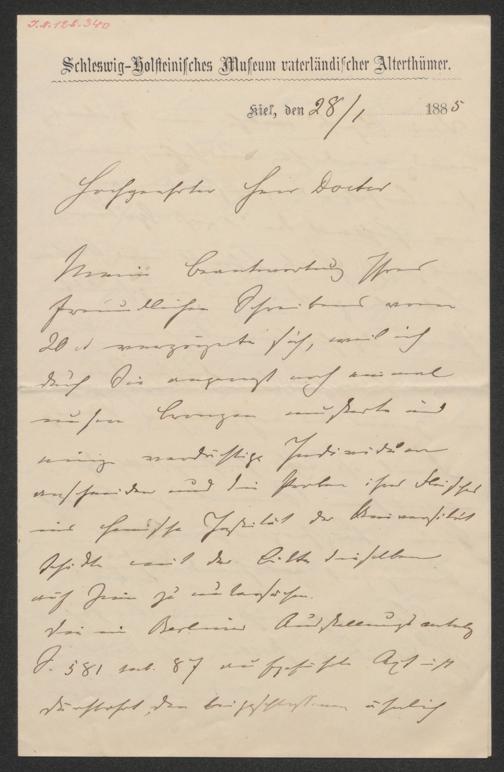 J.N.128.340
Schleswig-Holsteinisches Museum vaterländischer Alterthümer.
Kiel, den 28/1 1885
Hochgeehrter Herr Doctor
Meine Beantwortung Ihres
freundlichen Schreibens vom
20 d verzögerte sich, weil ich
durch Sie angeregt noch einmal
unsere Bronzen musterte und
einige verdächtige Individuen
anschneiden und die Proben
ins chemische Institut der Universität
schickte mit der Bitte dieselben
auf Zinn zu untersuchen.
Die im Berliner Ausstellungskatalog
S. 581 sub. 87 aufgeführte Axt ist
durchbohrt, den ähnlich